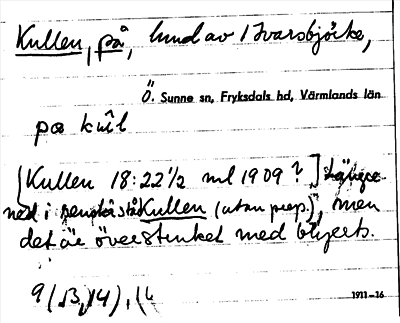 Kullen, på, hund av Ivarsbjörke,
Ö. Sunne sn, Fryksdals hd, Värmlands län
på kul̂l
[Kullen 18:22½ ml 1909?] Längre
ned i Kullen (utan prep.), men
det är överstruket med blyerts.
1911–16